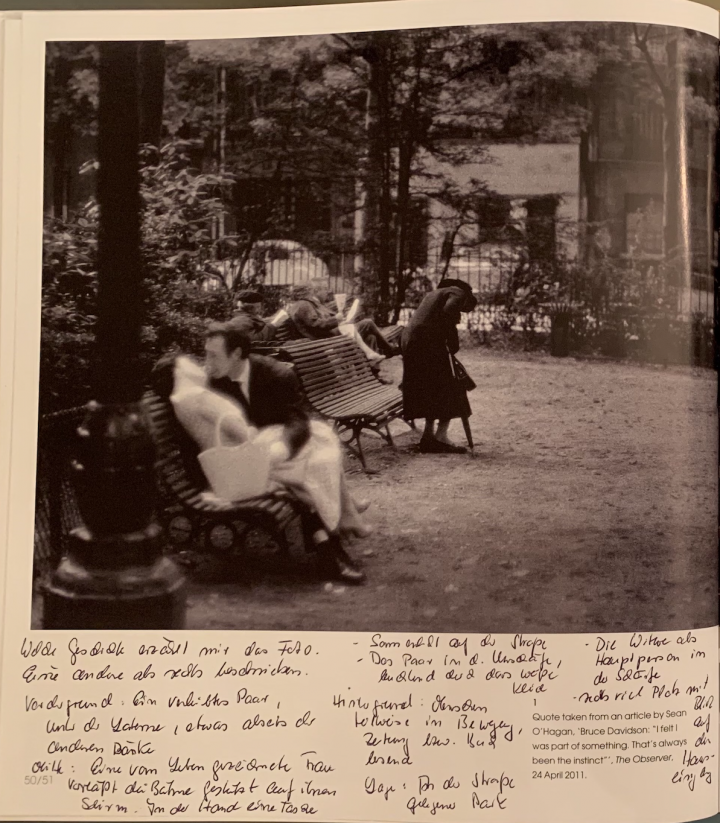 Welche Geschichte erzählt mir das Foto.
Eine andere als rechts beschrieben.
Vordergrund: Ein verliebtes Paar,
unter der Laterne, etwas abseits der
anderen Bänke
Mitte: Eine vom Leben gezeichnete Frau
verläßt die Bühne gestützt auf ihren
Schirm. In der Hand eine Tasche
50/51
- Sonne fällt auf die Straße
- Das Paar in d. Unschärfe,
durch das weiße
Kleid
Hintergrund: Menschen
teilweise in Bewegung,
Zeitung bzw. Buch
lesend
Lage: An der Straße
gelegener Park
- Die Witwe als
Hauptperson in
der Schärfe
- rechts viel Platz mit
Blick
auf
den
Haus-
eingang
1
Quote taken from an article by Sean
O'Hagan, 'Bruce Davidson: "I felt I
was part of something. That's always
been the instinct"', The Observer,
24 April 2011.